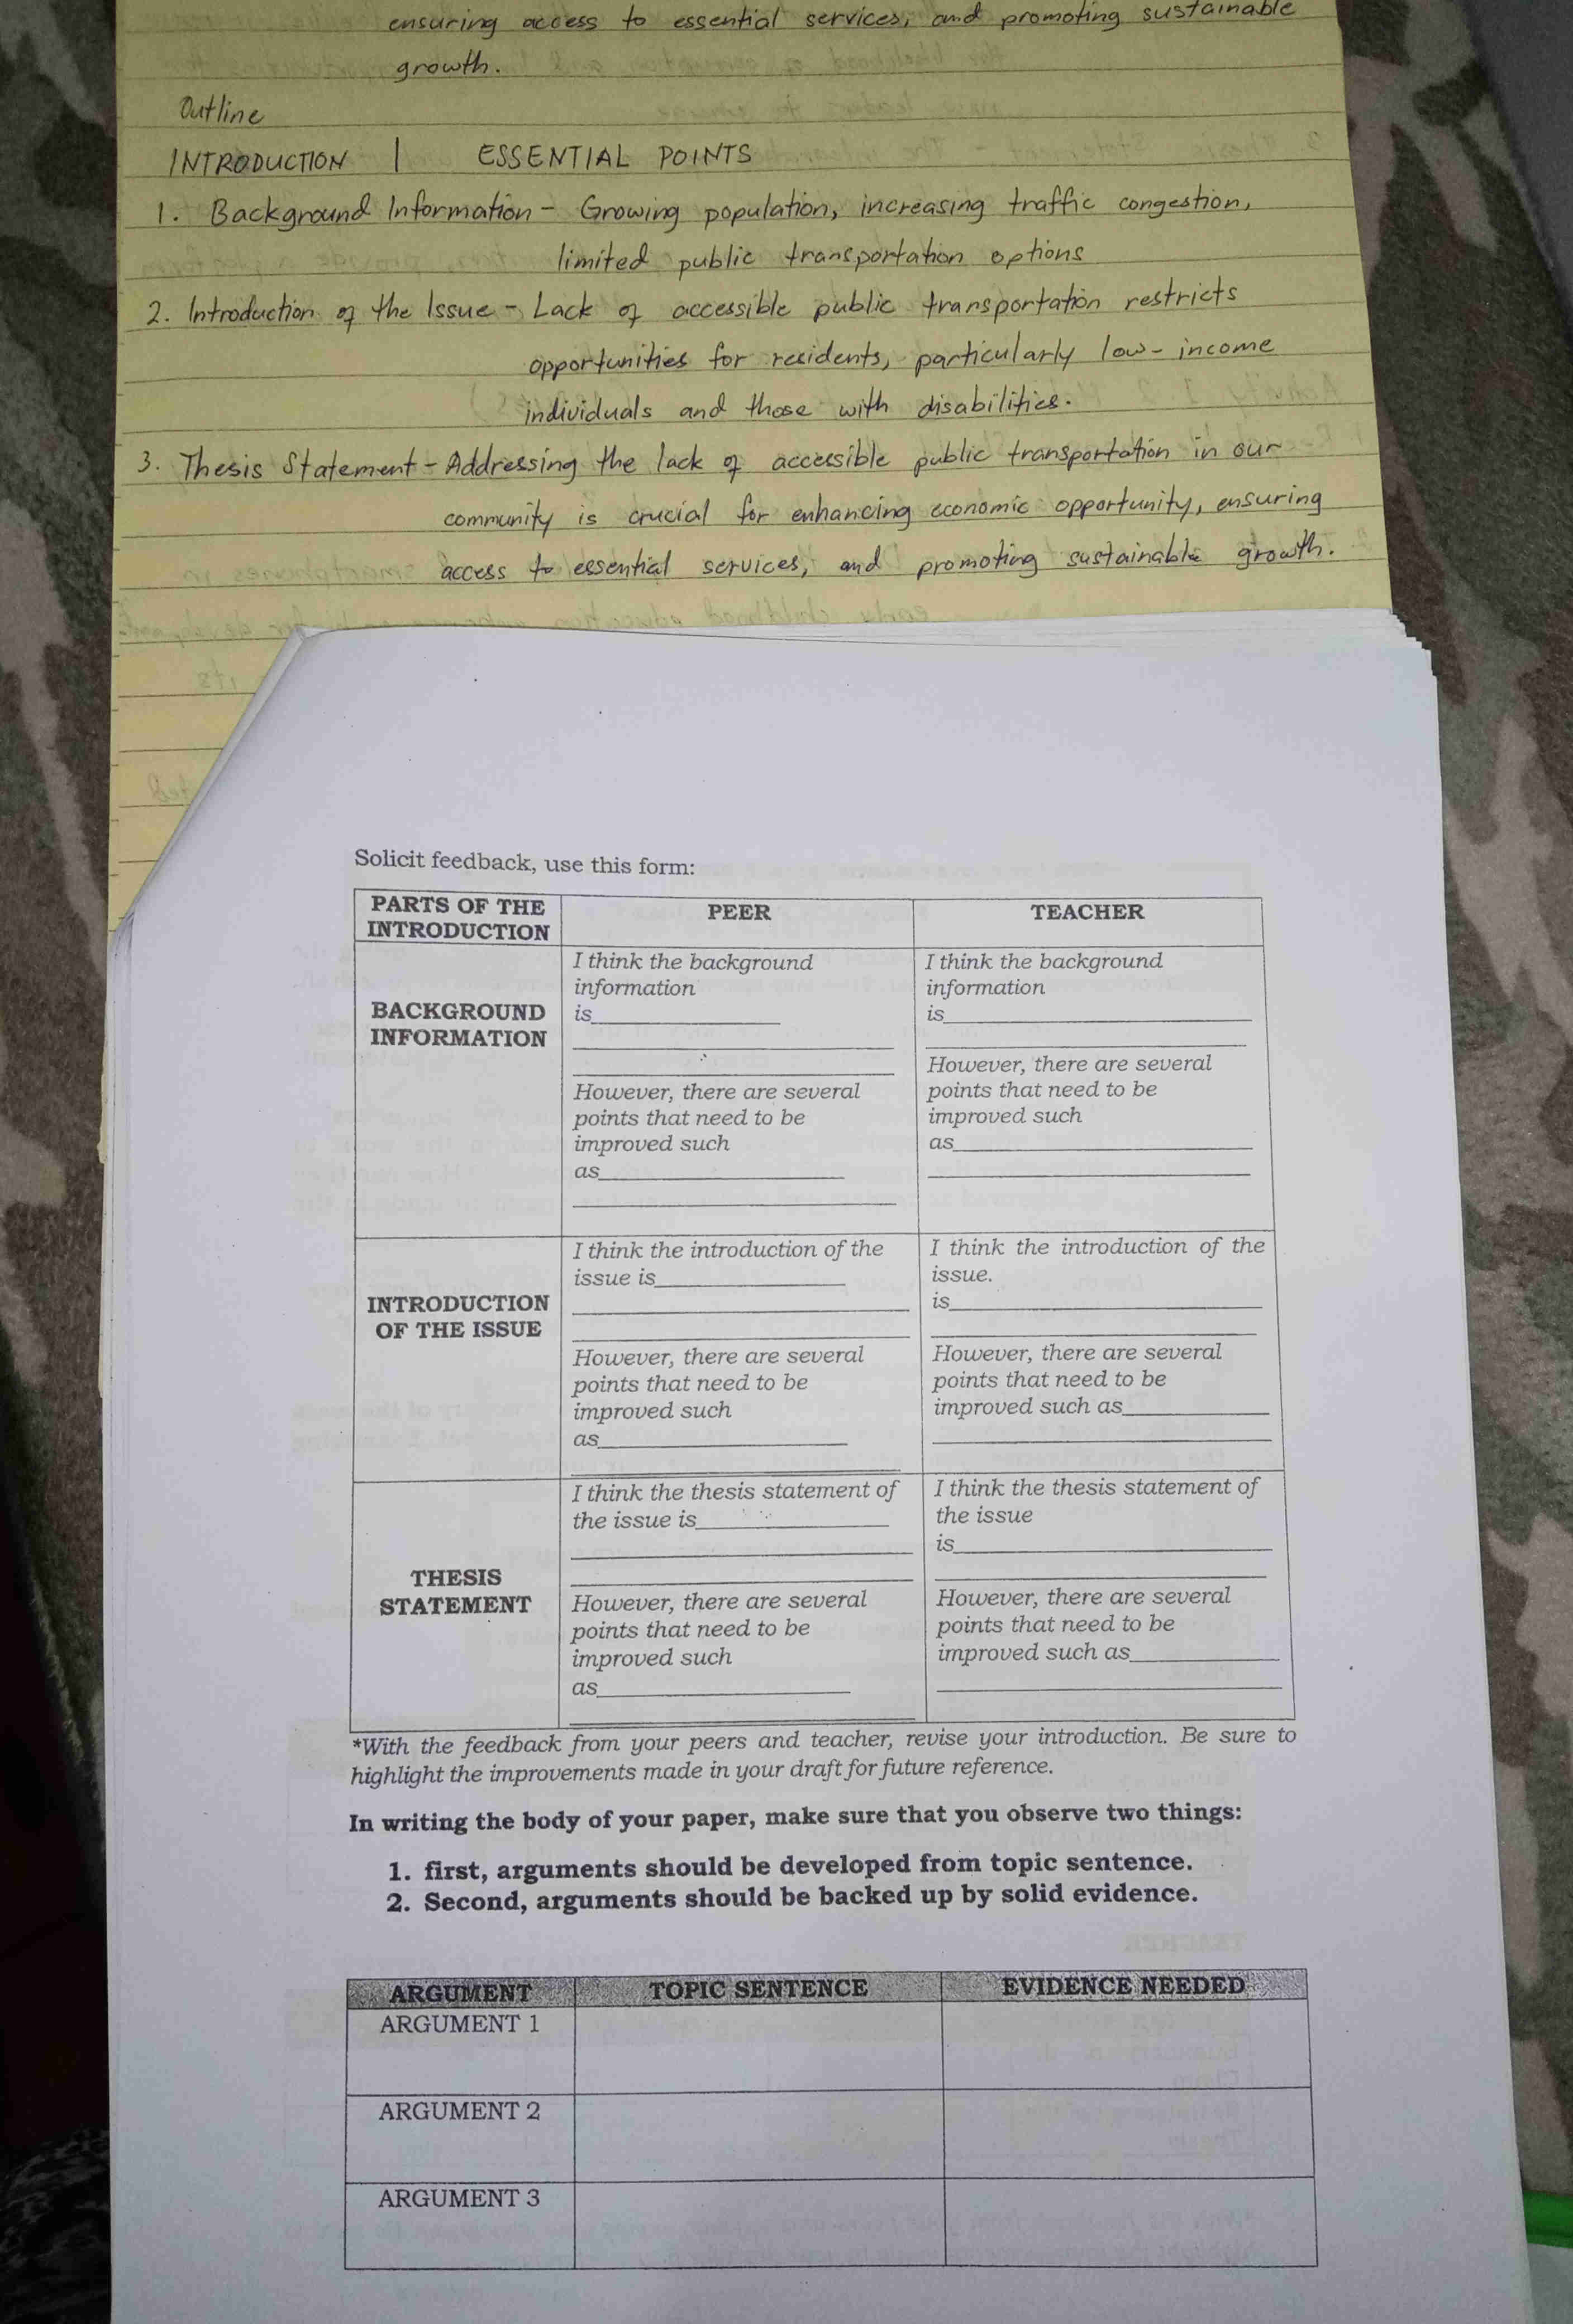 ensuring access to essential services, and promoting sustainable
growth.
Outline
INTRODUCTION | ESSENTIAL POINTS
1. Background Information - Growing population, increasing traffic congestion,
limited public transportation options
2. Introduction of the Issue - Lack of accessible public transportation restricts
opportunities for residents, particularly low-income
individuals and those with disabilities.
3. Thesis Statement - Addressing the lack of accessible public transportation in our
community is crucial for enhancing economic opportunity, ensuring
access to essential services, and promoting sustainable growth.
Solicit feedback, use this form:
PARTS OF THE
INTRODUCTION
PEER
TEACHER
BACKGROUND
INFORMATION
I think the background
information
is
However, there are several
points that need to be
improved such
as
I think the background
information
is
However, there are several
points that need to be
improved such
as
INTRODUCTION
OF THE ISSUE
I think the introduction of the
issue is
However, there are several
points that need to be
improved such
as
I think the introduction of the
issue.
is
However, there are several
points that need to be
improved such as
THESIS
STATEMENT
I think the thesis statement of
the issue is
However, there are several
points that need to be
improved such
as
I think the thesis statement of
the issue
is
However, there are several
points that need to be
improved such as
*With the feedback from your peers and teacher, revise your introduction. Be sure to
highlight the improvements made in your draft for future reference.
In writing the body of your paper, make sure that you observe two things:
1. first, arguments should be developed from topic sentence.
2. Second, arguments should be backed up by solid evidence.
ARGUMENT TOPIC SENTENCE EVIDENCE NEEDED
ARGUMENT 1
ARGUMENT 2
ARGUMENT 3